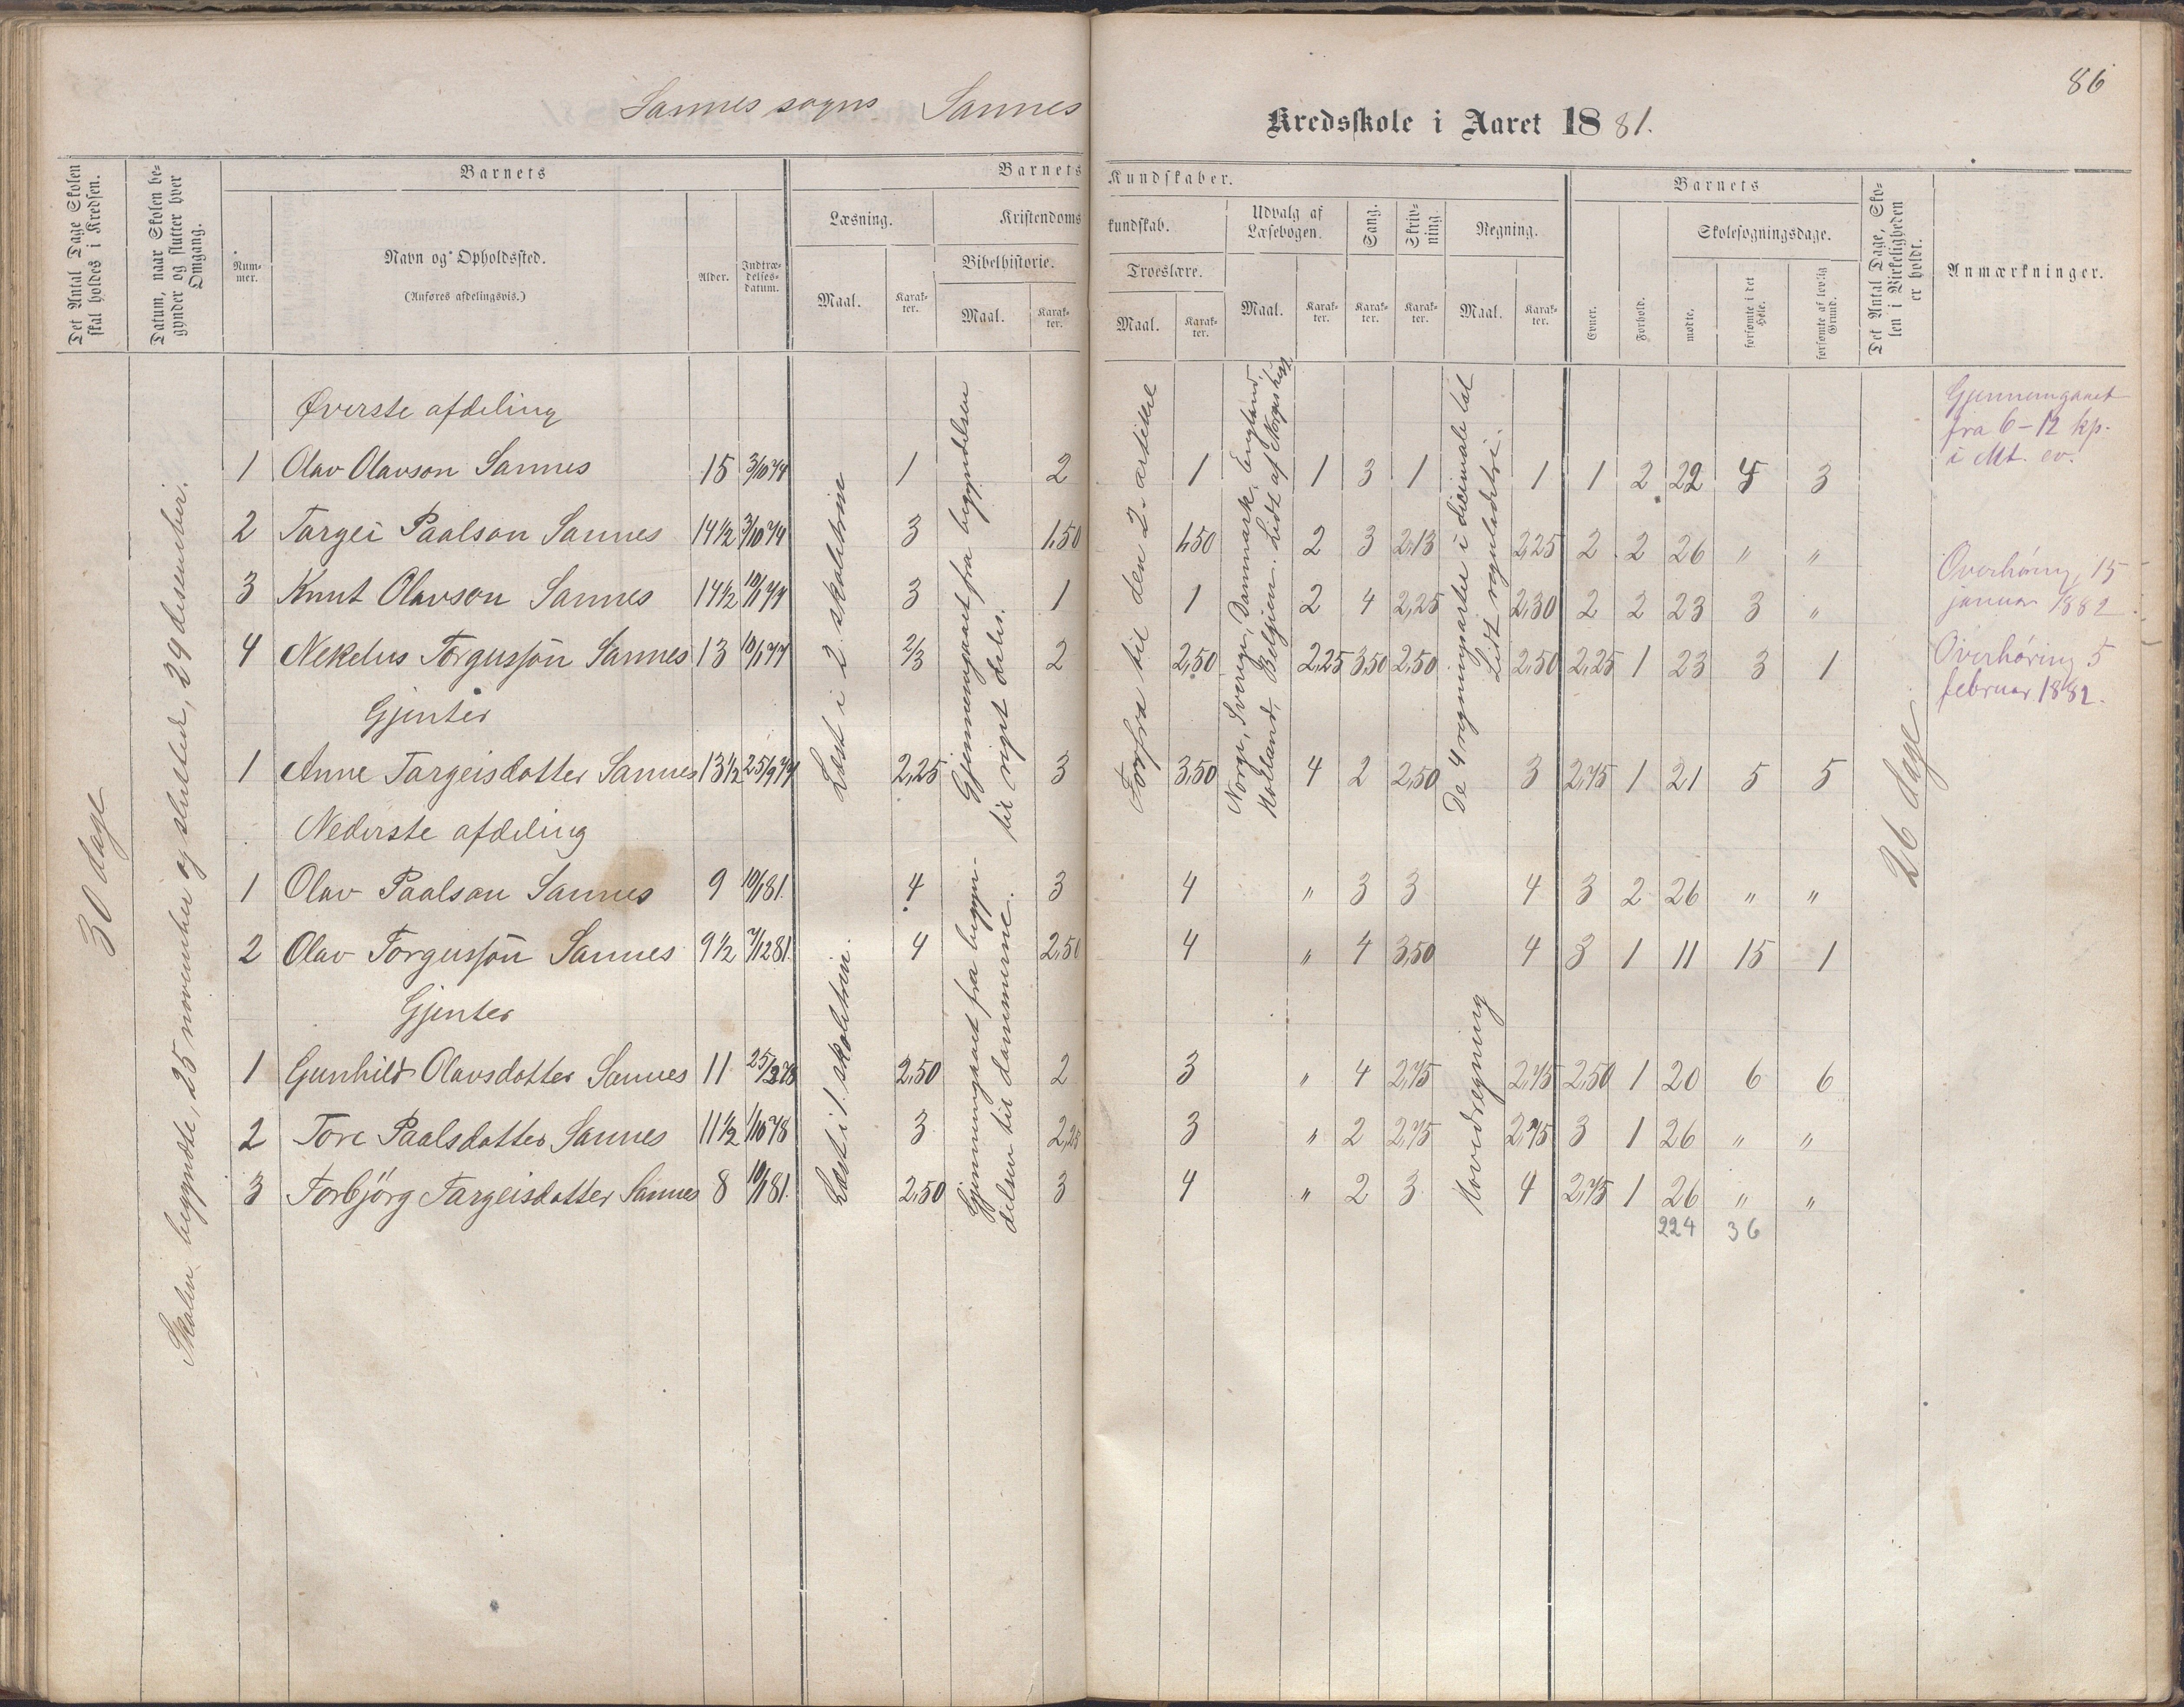 86
Sannes sogns Sannes Kredsskole i Aaret 1881.
Det Antal Dage Skolen skal holdes i Kredsen.
Datum, naar Skolen begynder og slutter hver Omgang.
Barnets
Nummer.
Navn og Opholdssted.
(Anføres afdelingsvis.)
Alder.
Indtrædelses-datum.
Barnets Kundskaber.
Læsning.
Maal.
Karakter.
Kristendomskundskab.
Bibelhistorie.
Maal.
Karakter.
Troeslære.
Maal.
Karakter.
Udvalg af Læsebogen.
Maal.
Karakter.
Sang.
Karakter.
Skrivning.
Karakter.
Regning.
Maal.
Karakter.
Barnets
Evner.
Forhold.
Skolesøgningsdage.
mødte.
forsømte i det Hele.
forsømte af lovlig Grund.
Det Antal Dage, Skolen i Virkeligheden er holdt.
Anmærkninger.
30 dage
Skolen begyndte, 25 november og sluttede, 29 desember.
Øverste afdeling
1 Olav Olavson Sannes 15 3/10 74 1 2 1 1 3 1 1 1 2 22 4 3
2 Targei Paalson Sannes 14 1/2 3/10 74 3 1,50 1,50 2 3 2,13 2,25 2 2 26 " "
3 Knut Olavson Sannes 14 1/2 10/1 74 3 1 1 2 4 2,25 2,30 2 2 23 3 "
4 Nekelus Torgusson Sannes 13 10/1 77 2/3 2 2,50 2,25 3,50 2,50 2,50 2,25 1 23 3 1
Gjenter
1 Anne Targeisdotter Sannes 13 1/2 25/9 77 2,25 3 3,50 4 2 2,50 3 2,75 1 21 5 5
Nederste afdeling
1 Olav Paalson Sannes 9 10/1 81. 4 3 4 " 3 3 4 3 2 26 " "
2 Olav Torgusson Sannes 9 1/2 7/12 81. 4 2,50 4 " 4 3,50 4 3 1 11 15 1
Gjenter
1 Gunhild Olavsdotter Sannes 11 25/2 78 2,50 2 3 " 4 2,75 2,75 2,50 1 20 6 6
2 Tore Paalsdotter Sannes 11 1/2 1/10 78 3 2,25 3 " 2 2,75 2,75 3 1 26 " "
3 Torbjörg Targeisdotter Sannes 8 10/1 81. 2,50 3 4 " 2 3 4 2,75 1 26 " "
224 36
Læst i 2 skoletrin
Læst i 1. skoletrin.
Gjennemgaaet fra begyndelsen
til riget delis.
Gjennemgaaet fra begyn-
delsen til dommerne.
Forfra til den 2. artikkel
Norge, Sverige, Danmark, England,
Holland, Belgien. Lidt af Norges hist
De 4 regningsarter i desimale tal
Lidt reguladetri.
Hovedregning
26 dage
Gjennemgaaet
fra 6-12 kp.
i Mt. ev.
Overhøring 15
januar 1882.
Overhøring 5
februar 1882.